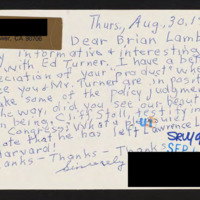 Thurs, Aug. 30, 19
Dear Brian Lamb
CA 80106
Informative & interesting
with Ed Turner. I have a be
eciation of your "product" wh
ee you & Mr. Turner are in posit
ake some of the policy judgmen
way, did you see our beaut
being, Cliff Stoll, testify in
Congress? What a
ote that he has left Lawrence L
Harvard!
anks - Thanks - Thanks
Sincerely
SEP